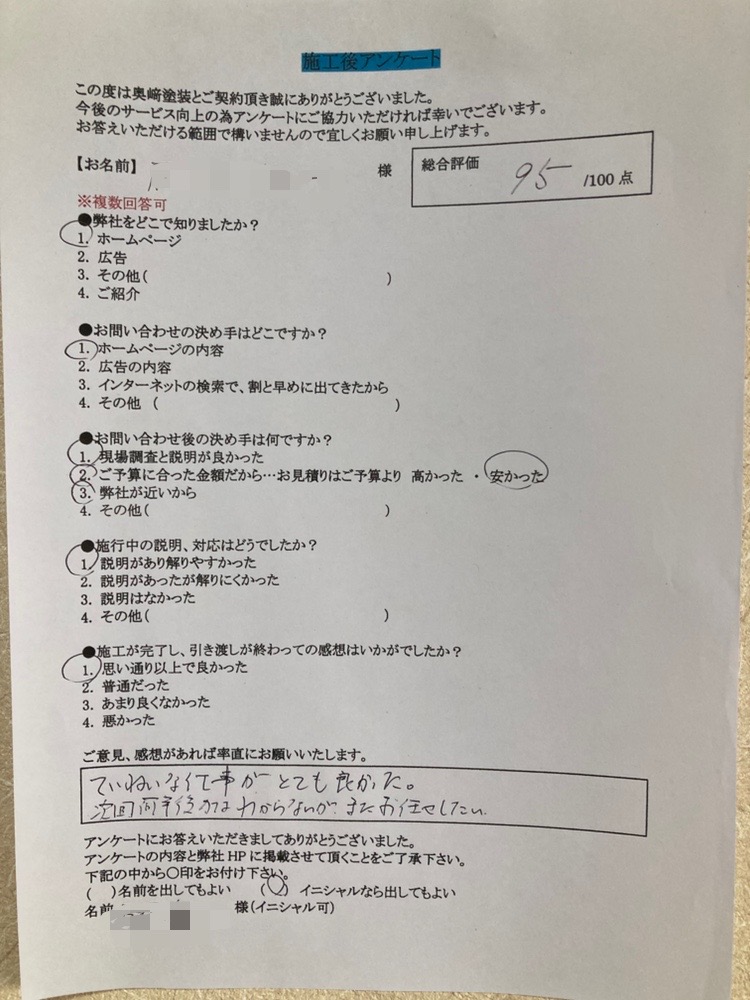 施工後アンケート
この度は奥﨑塗装とご契約頂き誠にありがとうございました。
今後のサービス向上の為アンケートにご協力いただければ幸いでございます。
お答えいただける範囲で構いませんので宜しくお願い申し上げます。
【お名前】 様
総合評価 95 /100 点
※複数回答可
●弊社をどこで知りましたか?
1. ホームページ
2. 広告
3. その他( )
4. ご紹介
●お問い合わせの決め手はどこですか?
1. ホームページの内容
2. 広告の内容
3. インターネットの検索で、割と早めに出てきたから
4. その他 ( )
●お問い合わせ後の決め手は何ですか?
1. 現場調査と説明が良かった
2. ご予算に合った金額だから…お見積りはご予算より 高かった ・ 安かった
3. 弊社が近いから
4. その他( )
●施行中の説明、対応はどうでしたか?
1. 説明があり解りやすかった
2. 説明があったが解りにくかった
3. 説明はなかった
4. その他( )
●施工が完了し、引き渡しが終わっての感想はいかがでしたか?
1. 思い通り以上で良かった
2. 普通だった
3. あまり良くなかった
4. 悪かった
ご意見、感想があれば率直にお願いいたします。
ていねいな仕事がとても良かった。
次回何年後かはわからないが、またお任せしたい。
アンケートにお答えいただきましてありがとうございました。
アンケートの内容と弊社 HP に掲載させて頂くことをご了承下さい。
下記の中から〇印をお付け下さい。
( )名前を出してもよい (〇) イニシャルなら出してもよい
名前 様(イニシャル可)